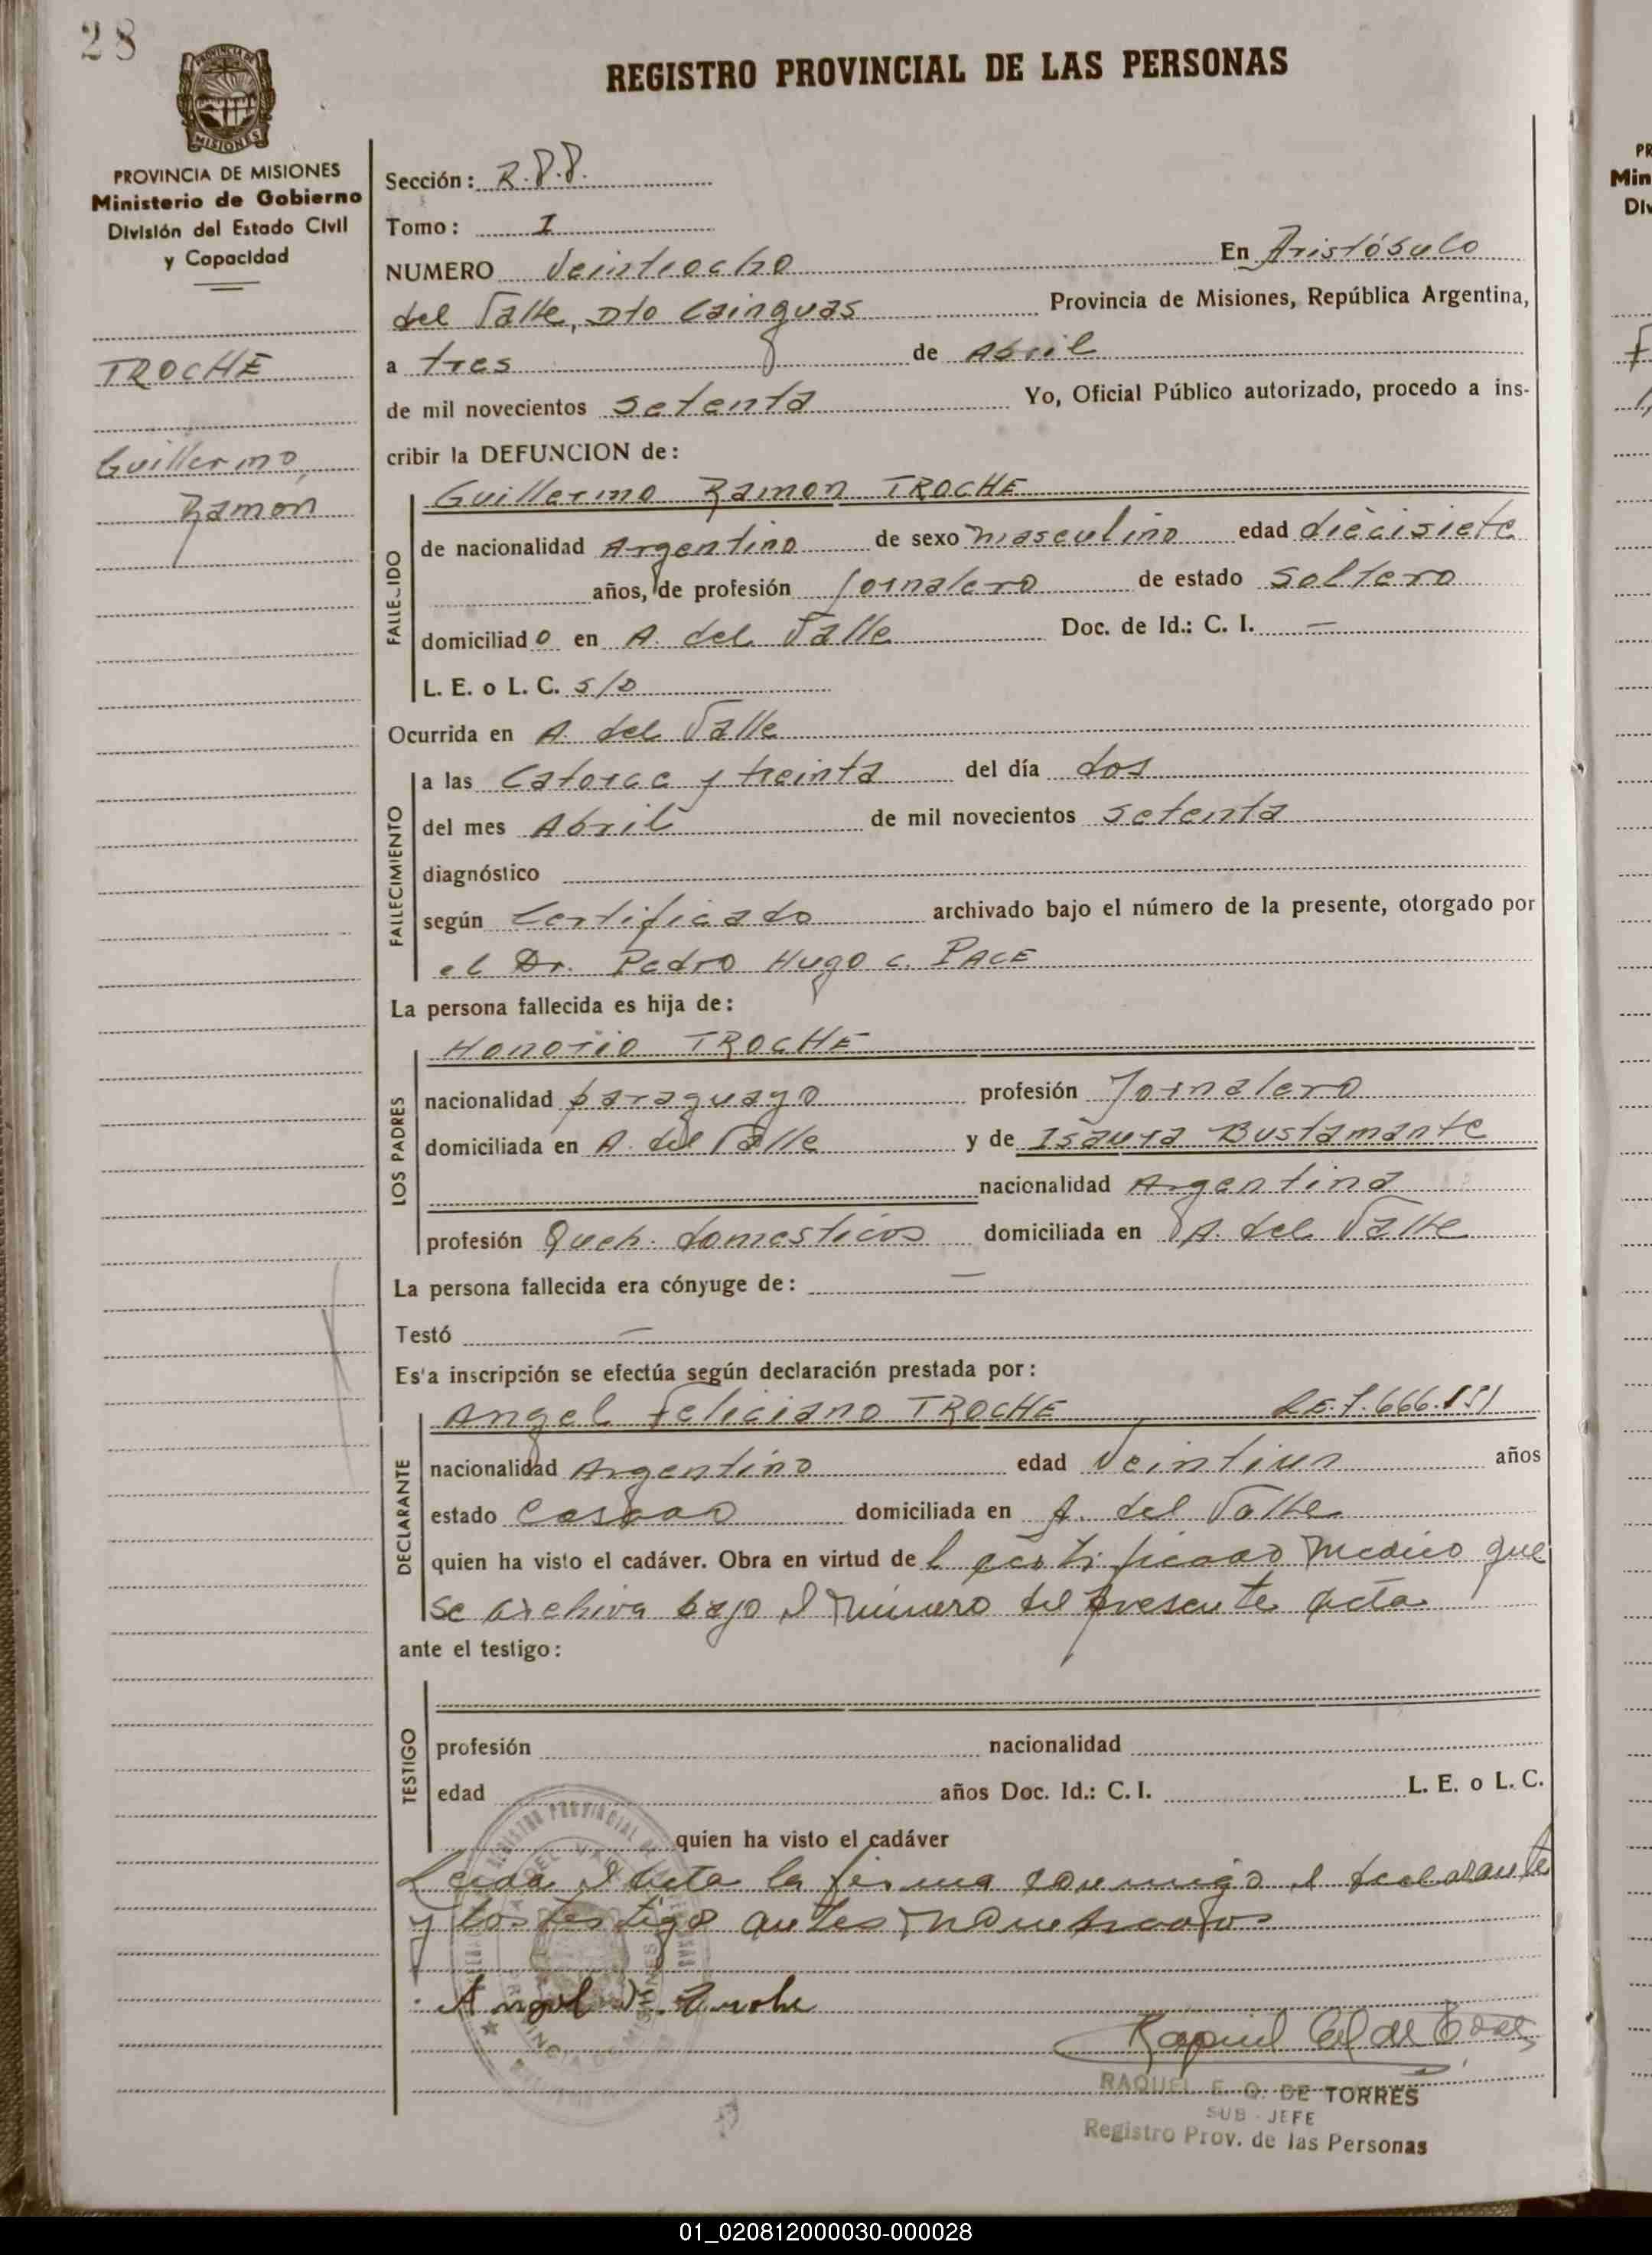 28
REGISTRO PROVINCIAL DE LAS PERSONAS
PROVINCIA DE MISIONES
Ministerio de Gobierno
División del Estado Civil
y Capacidad
TROCHE
Guillermo
Ramon
Sección:
Tomo: I
NUMERO Veintiocho En Aristóbulo
del Valle, Dto Cainguas Provincia de Misiones, República Argentina,
a tres de Abril
de mil novecientos setenta Yo, Oficial Público autorizado, procedo a ins-
cribir la DEFUNCION de:
Guillermo Ramon TROCHE
FALLECIDO
de nacionalidad Argentino de sexo masculino edad diecisiete
años, de profesión Jornalero de estado soltero
domiciliado en A. del Valle Doc. de Id.: C. I. —
L. E. o L. C. s/d
Ocurrida en A. del Valle
FALLECIMIENTO
a las Catorce y treinta del día dos
del mes Abril de mil novecientos setenta
diagnóstico
según Certificado archivado bajo el número de la presente, otorgado por
el Dr. Pedro Hugo C. PACE
La persona fallecida es hija de:
LOS PADRES
Honorio TROCHE
nacionalidad paraguayo profesión Jornalero
domiciliada en A. del Valle y de Isaura Bustamante
nacionalidad Argentina
profesión Queh. domesticos domiciliada en A. del Valle
La persona fallecida era cónyuge de: —
Testó —
Es'a inscripción se efectúa según declaración prestada por:
DECLARANTE
Angel Feliciano TROCHE LE.
nacionalidad Argentino edad Veintiun años
estado Casado domiciliada en A. del Valle
quien ha visto el cadáver. Obra en virtud del certificado medico que
se archiva bajo el número del presente acta
ante el testigo:
TESTIGO
profesión nacionalidad
edad años Doc. Id.: C. I. L. E. o L. C.
quien ha visto el cadáver
Leida el acta la firma conmigo el declarante
y los testigo antes nombrados
Angel F. Troche
RAQUEL E. O. DE TORRES
SUB - JEFE
Registro Prov. de las Personas
01_020812000030-000028